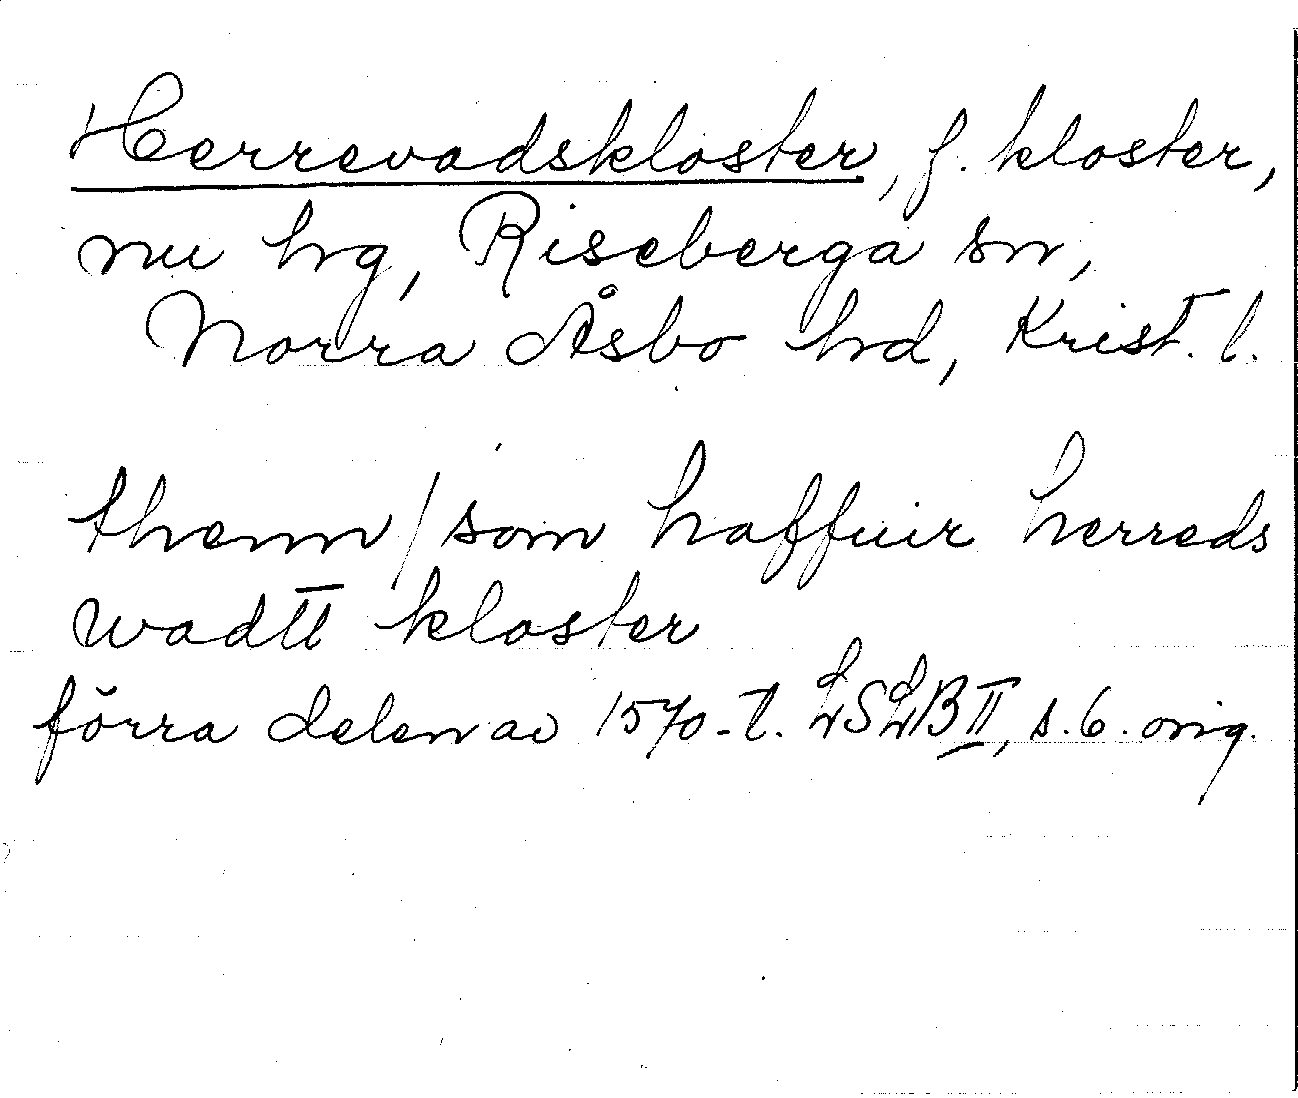 Herrevadskloster, f. kloster,
nu hrg, Riseberga sn,
Norra Åsbo hrd, Krist. l.
thenn / som haffuir herreds
wadtt kloster
förra delen av 1570-t. LSLB II, s. 6. orig.